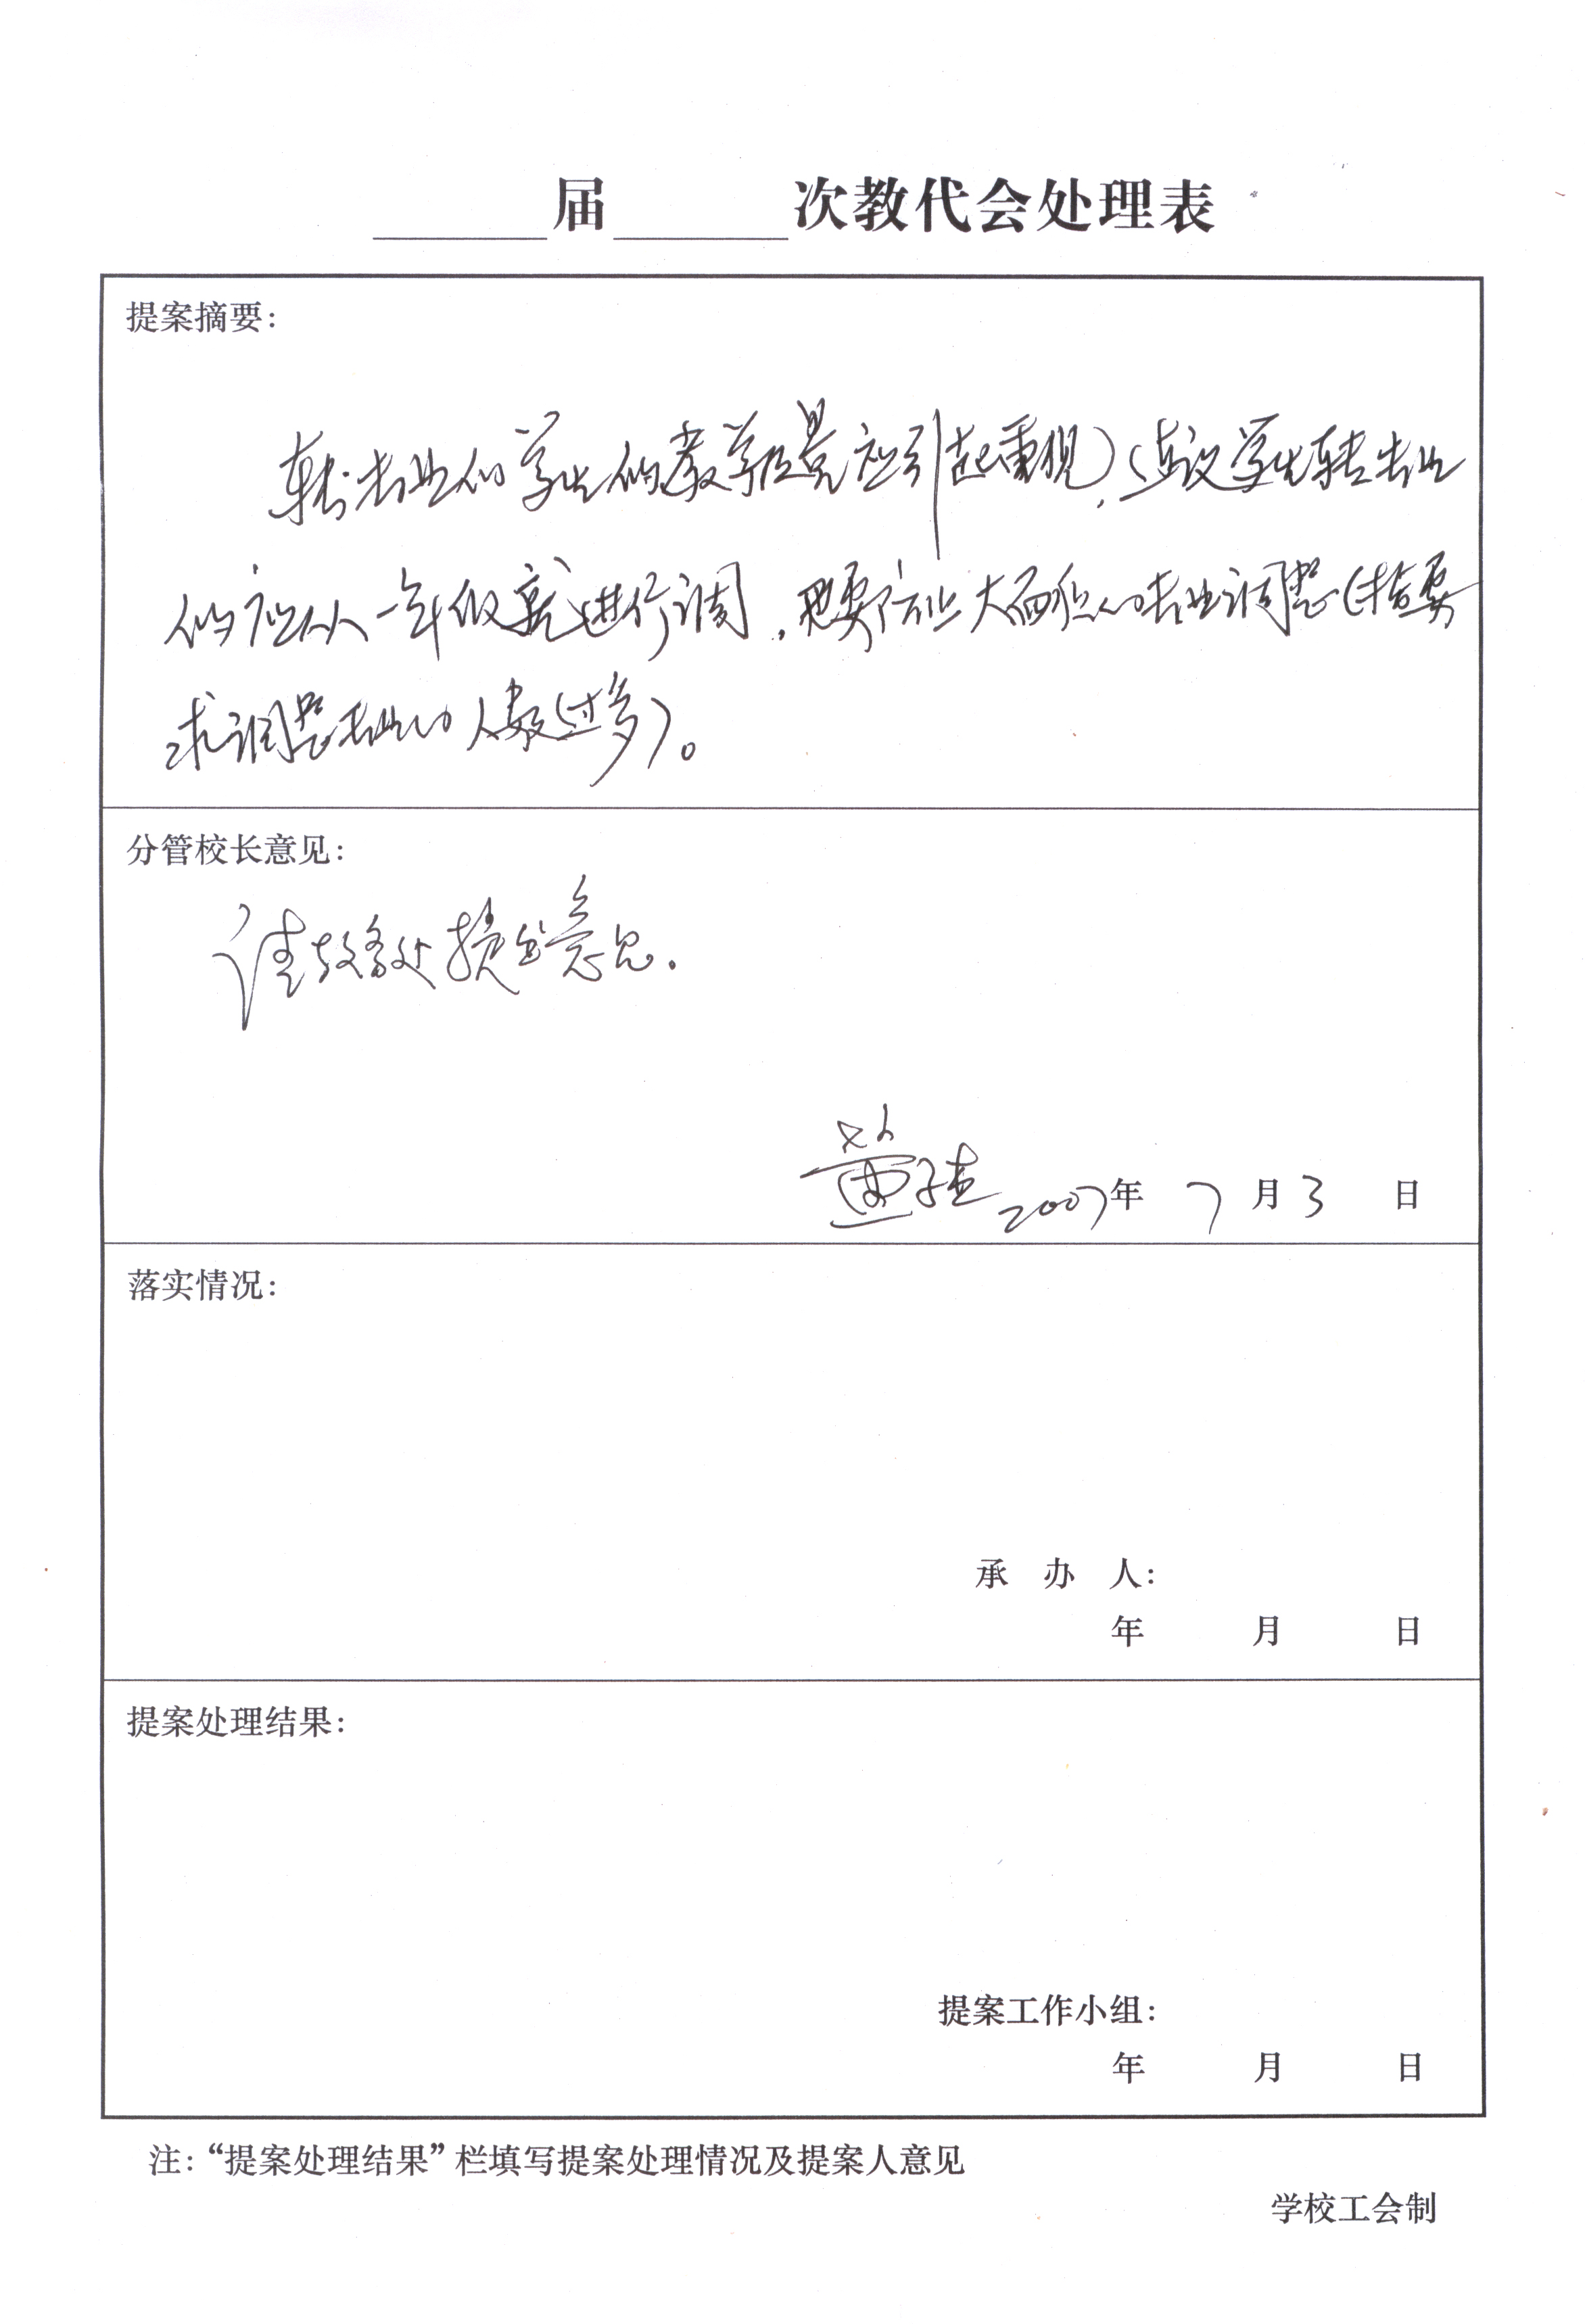 届 次教代会处理表
提案摘要：
转专业的学生的教学质量应引起重视，（建议学生转专业
的应从一年级就进行调，也要防止大面积的专业调整（指要
求调整专业的人数过多）。
分管校长意见：
请教务处提出意见.
黄 2007年 7 月 3 日
落实情况：
承 办 人：
年 月 日
提案处理结果：
提案工作小组：
年 月 日
注：“提案处理结果”栏填写提案处理情况及提案人意见
学校工会制